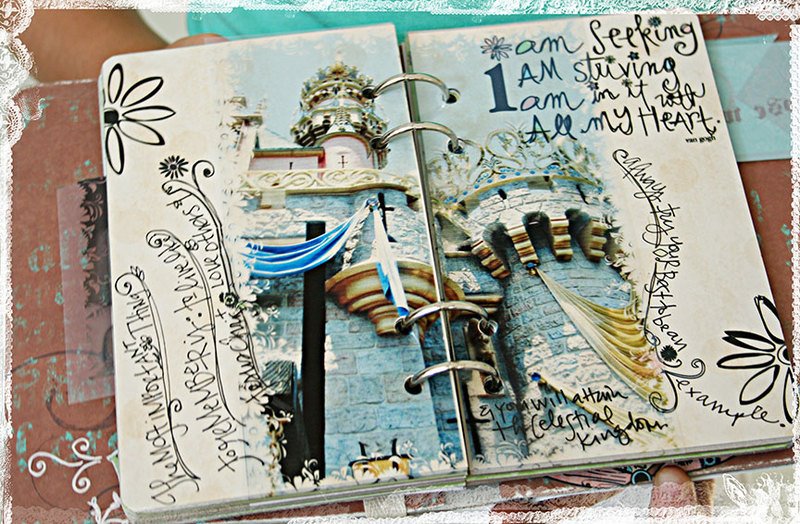 The MOST IMPORTANT Thing
to REMEMBER is: to live like
Jesus Christ + Love others
i am Seeking
AM striving
am in it with
All my HEART.
van gogh
always try your Best to be an
example.
& you will attain
the Celestial
Kingdom